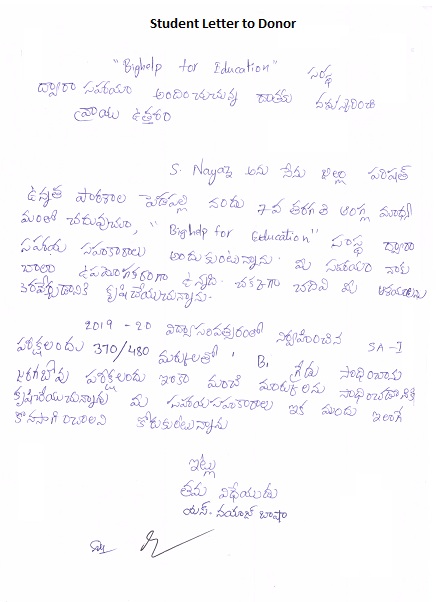 Student Letter to Donor
"Bighelp for Education" సంస్థ
ద్వారా సహాయం అందించుచున్న దాతకు
వ్రాయు ఉత్తరం
S. Nayaz అను నేను జిల్లా పరిషత్
ఉన్నత పాఠశాల నందు 7వ తరగతి ఆంగ్ల
చదువుచూ, "Bighelp for Education" సంస్థ ద్వారా
సహాయ సహకారాలు అందుకుంటున్నాను. మీ సహాయం నాకు
చాలా ఉపయోగకరంగా ఉన్నది. చక్కగా చదివి మీ ఆశయాలను
కృషి చేయుచున్నాను.
2019 - 20 విద్యాసంవత్సరంలో నిర్వహించిన SA-I
పరీక్షలందు 370/480 మార్కులతో B1 గ్రేడు సాధించాను
జరగబోవు పరీక్షలందు ఇంకా మంచి మార్కులను సాధించడానికి
కృషిచేయుచున్నాను మీ సహాయసహకారాలు ఇక ముందు ఇలాగే
కొనసాగించాలని కోరుకుంటున్నాను
ఇట్లు
తమ విధేయుడు
యస్. నయాజ్ బాషా